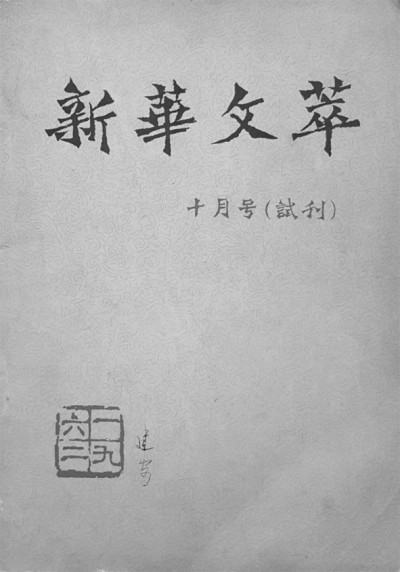 新華文萃
十月号(試刊)
一九
六二
建